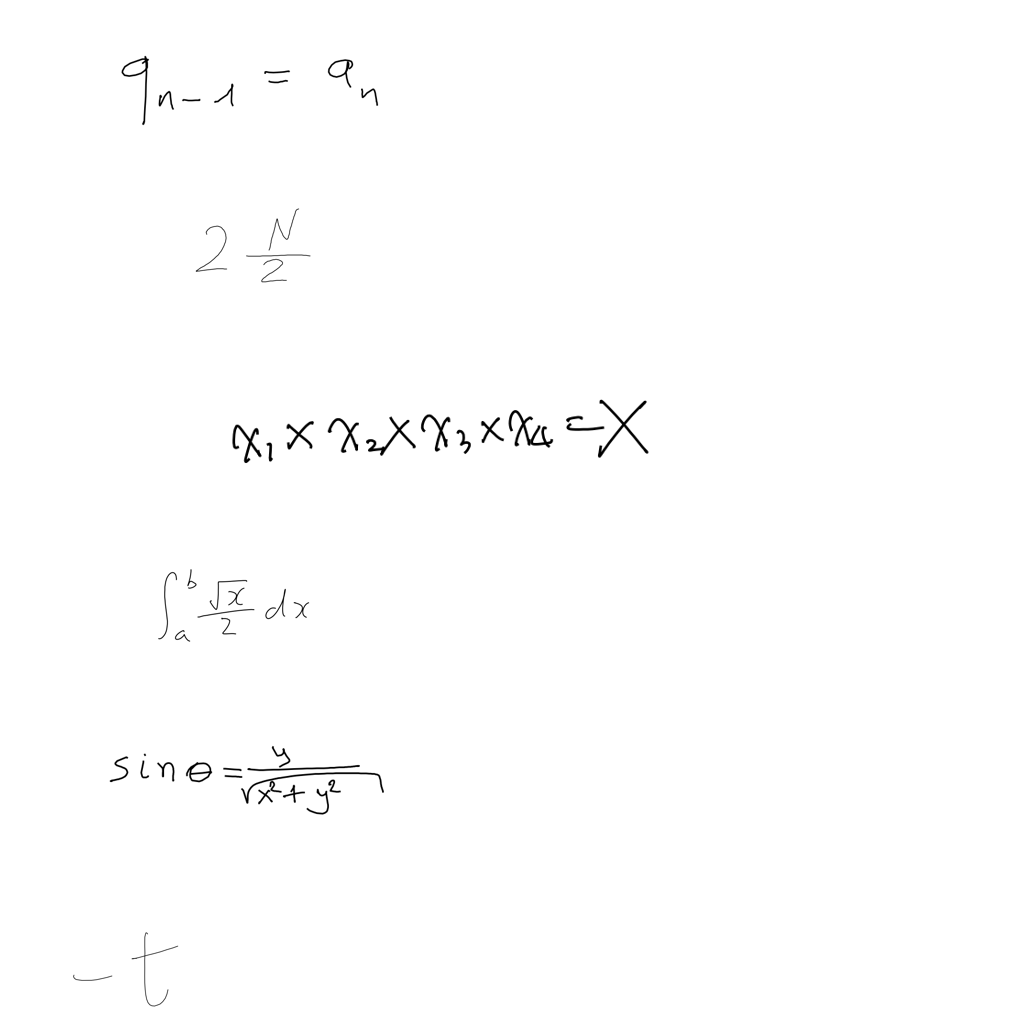 $q_{n-1} = a_n$
$2 \frac{N}{2}$
$x_1 \times x_2 \times x_3 \times x_4 = X$
$\int_a^b \frac{\sqrt{x}}{2} dx$
$\sin \theta = \frac{y}{\sqrt{x^2 + y^2}}$
$-t$